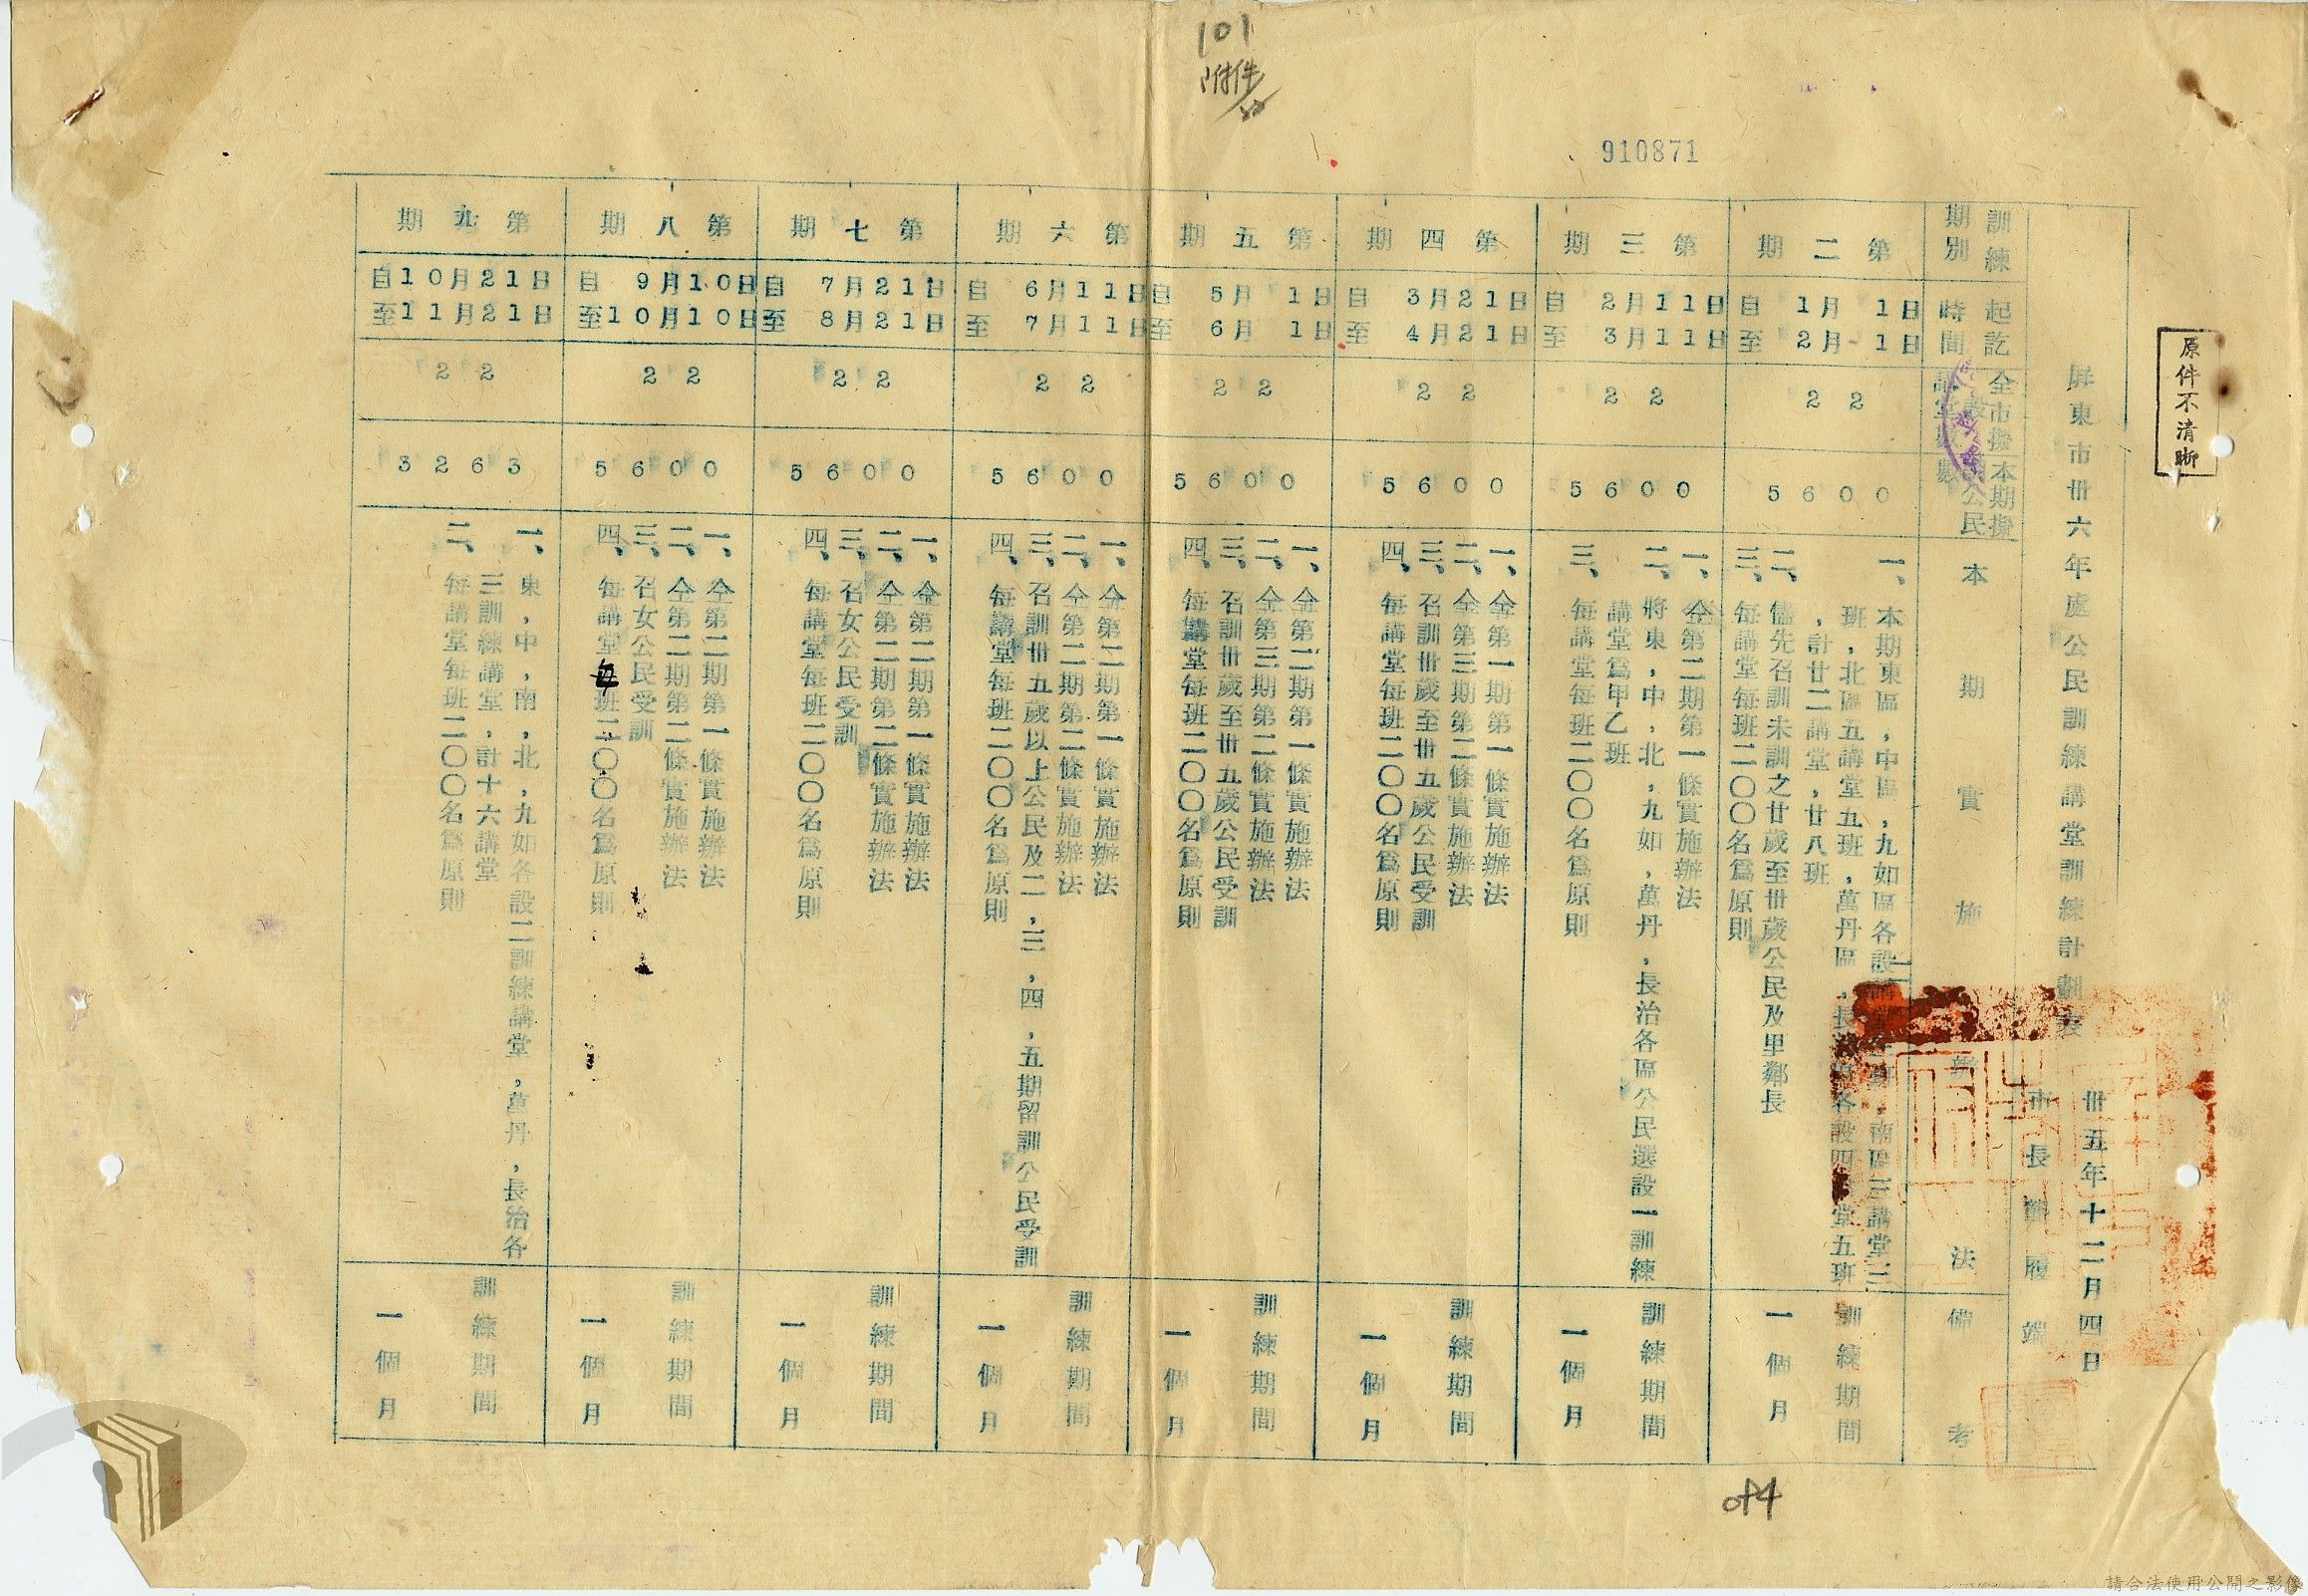 101
附件
910871
原件不清晰
屏東市卅六年處公民訓練講堂訓練計劃表
卅五年十二月四日
市長龔履端
訓練期別
起訖時間
全市擬設講堂數
本期擬訓公民數
本期實施辦法
備考
第二期
自1月1日
至2月1日
22
5600
一、本期東區,中區,九如區各設
南區三講堂三
班,北區五講堂五班,萬丹區,長
各設四
堂五班
,計廿二講堂,廿八班
二、儘先召訓未訓之廿歲至卅歲公民及里鄰長
三、每講堂每班二〇〇名爲原則
訓練期間
一個月
第三期
自2月11日
至3月11日
22
5600
一、仝第二期第一條實施辦法
二、將東,中,北,九如,萬丹,長治各區公民選設一訓練
講堂爲甲乙班
三、每講堂每班二〇〇名爲原則
訓練期間
一個月
第四期
自3月21日
至4月21日
22
5600
一、仝第一期第一條實施辦法
二、仝第三期第二條實施辦法
三、召訓卅歲至卅五歲公民受訓
四、每講堂每班二〇〇名爲原則
訓練期間
一個月
第五期
自5月1日
至6月1日
22
5600
一、仝第二期第一條實施辦法
二、仝第三期第二條實施辦法
三、召訓卅歲至卅五歲公民受訓
四、每講堂每班二〇〇名爲原則
訓練期間
一個月
第六期
自6月11日
至7月11日
22
5600
一、仝第二期第一條實施辦法
二、仝第二期第二條實施辦法
三、召訓卅五歲以上公民及二,三,四,五期留訓公民受訓
四、每講堂每班二〇〇名爲原則
訓練期間
一個月
第七期
自7月21日
至8月21日
22
5600
一、仝第二期第一條實施辦法
二、仝第二期第二條實施辦法
三、召女公民受訓
四、每講堂每班二〇〇名爲原則
訓練期間
一個月
第八期
自9月10日
至10月10日
22
5600
一、仝第二期第一條實施辦法
二、仝第二期第二條實施辦法
三、召女公民受訓
四、每講堂每班二〇〇名爲原則
訓練期間
一個月
第九期
自10月21日
至11月21日
22
3263
一、東,中,南,北,九如各設二訓練講堂,萬丹,長治各
三訓練講堂,計十六講堂
二、每講堂每班二〇〇名爲原則
訓練期間
一個月
請合法使用公開之影像